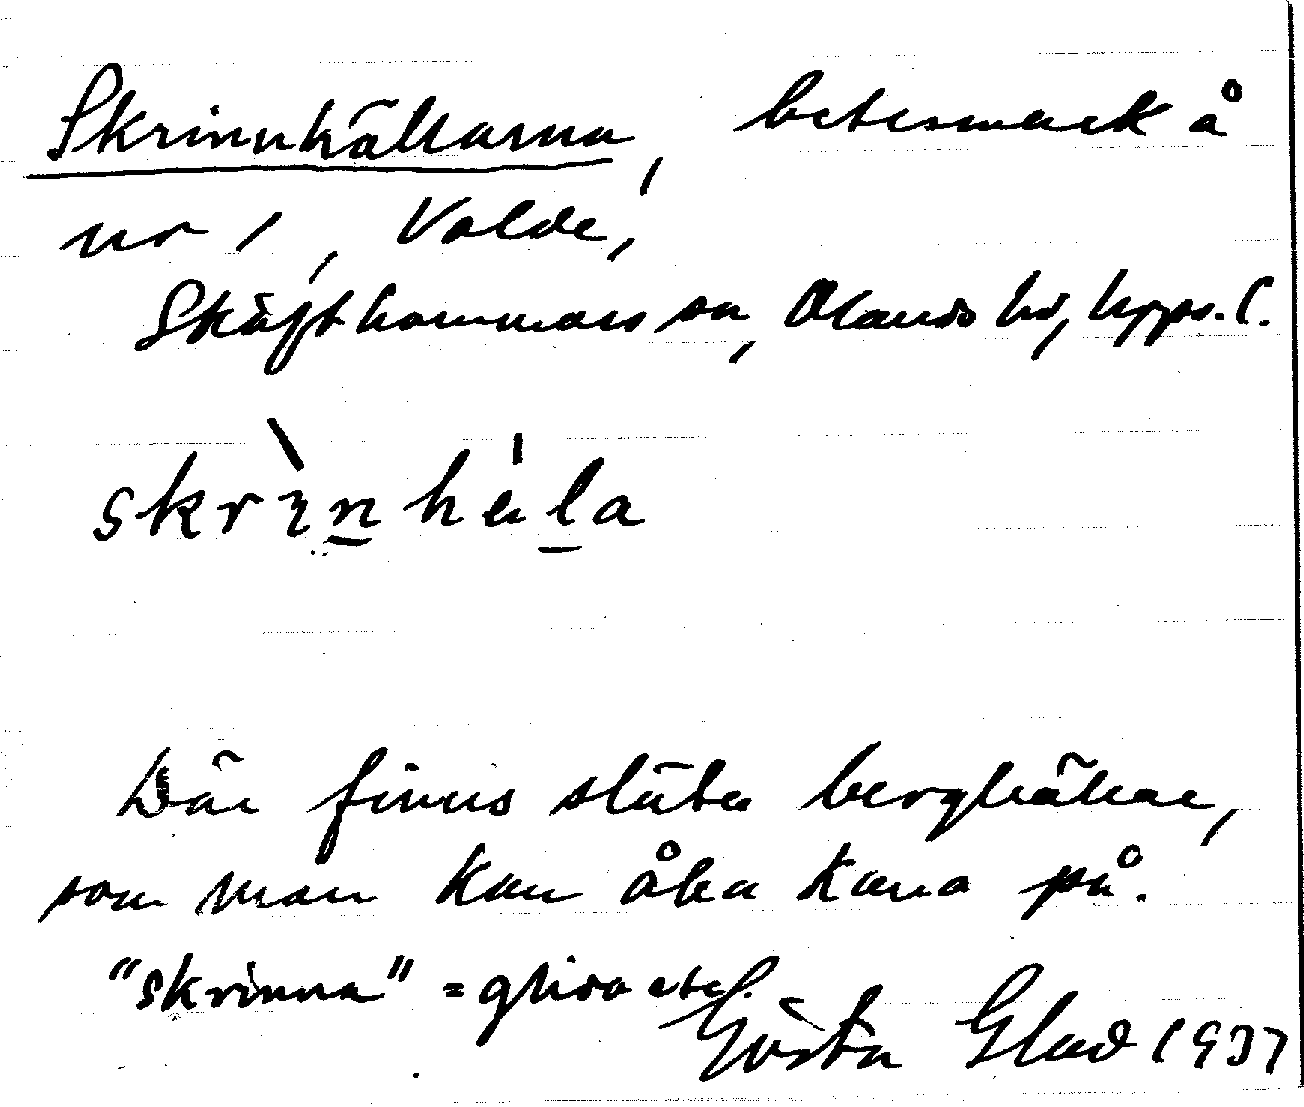 Skrinnhällarna, betesmark å
nr 1, Valde,
Skäfthammars sn, Olands hd, Upps. l.
skrìn hela
Där finns släta berghällar,
som man kan åka kana på.
"skrinna" = glida etc.
Gösta Glad 1937